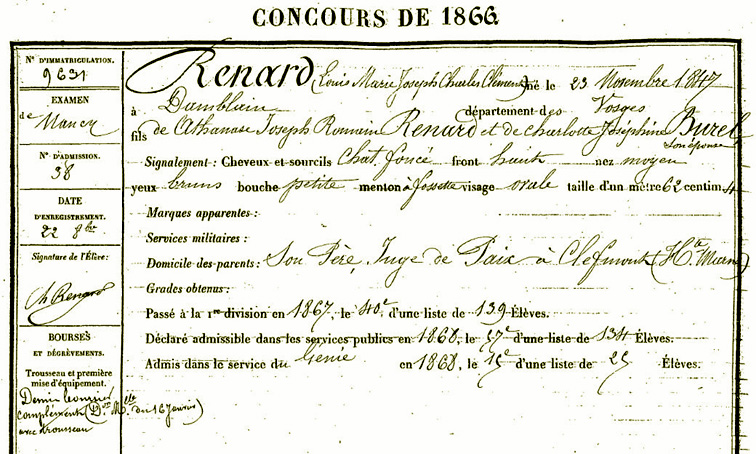 CONCOURS DE 1866
N° D'IMMATRICULATION.
9631
EXAMEN
de Nancy
N° D'ADMISSION.
38
DATE
D'ENREGISTREMENT.
22 8bre
Signature de l'Élève:
Ch Renard
BOURSES
ET DÉGRÈVEMENTS.
Trousseau et première
mise d'équipement.
Demi bourse
complément (Don Mlle du 16 Janvier)
avec trousseau
Renard (Louis Marie Joseph Charles Clément) né le 23 Novembre 1847
à Damblain département des Vosges
fils de Athanase Joseph Romain Renard et de Charlotte Joséphine Burel
Son épouse
Signalement : Cheveux et sourcils Chat. foncé front haut nez moyen
yeux bruns bouche petite menton à fossette visage ovale taille d'un mètre 62 centim. 4
Marques apparentes :
Services militaires :
Domicile des parents : Son Père, Juge de Paix à Clefmont (Hte Marne)
Grades obtenus :
Passé à la 1re division en 1867, le 40e d'une liste de 139 Élèves.
Déclaré admissible dans les services publics en 1868, le 17e d'une liste de 134 Élèves.
Admis dans le service du Génie en 1868, le 15e d'une liste de 25 Élèves.